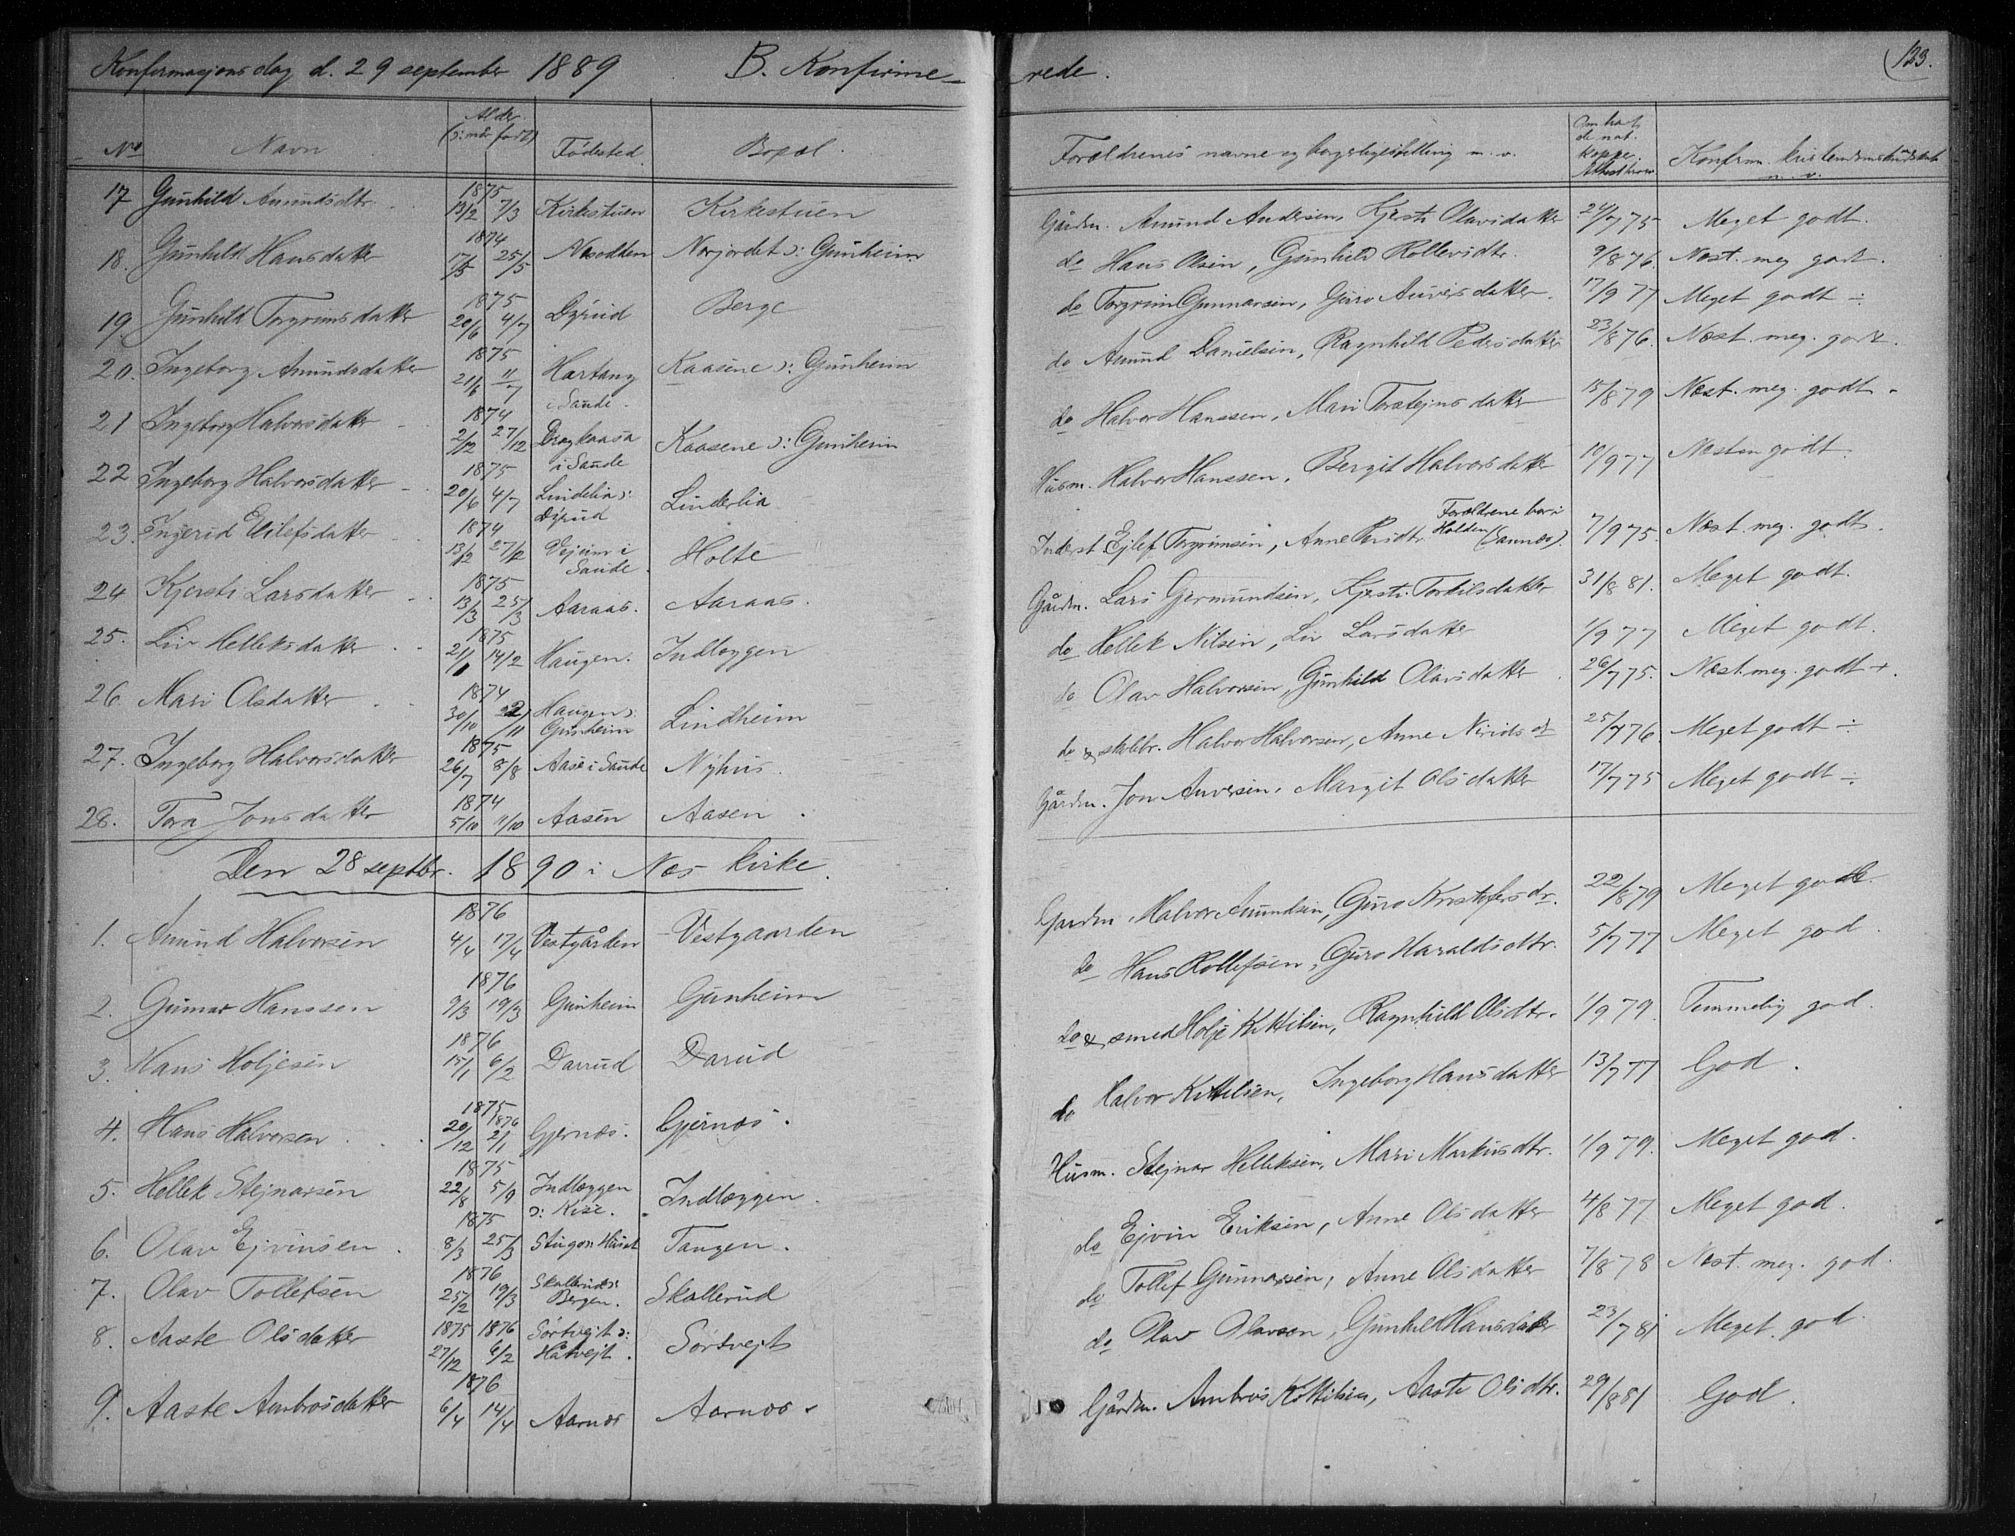 Konfirmasjonsdag d. 29 september 1889 B. Konfirme-
rede. 123.
No Navn Alder (o: når født) Fødested Bopæl. Forældrenes navne og borgerlige stilling m. v. Om hat de nat. kopper Konfirm. kristendomskundskab m. v.
17 Gunhild Amundsdtr. 1875 13/2 7/3 Kirkestuen Kirkestuen Gårdm. Amund Andersen, Kjersti Olavsdatter 24/7 75 Meget godt.
18. Gunhild Hansdatter 1874 17/5 25/5 Næsodden Norjordet o: Gunheim do Hans Olsen, Gunhild Rollevsdtr. 9/8 76. Næst. meg godt.
19. Gunhild Torgrimsdatter 1875 20/6 4/7 Dyrud Berge do Torgrim Gunnarsen, Guro Auversdatter. 17/9 77 Meget godt ÷
20. Ingeborg Amundsdatter 1875 21/6 11/7 Hærtang i Saude. Kaasene o: Gunheim do Amund Danielsen, Ragnhild Pedersdatter 23/8 76. Næst meg. godt.
21 Ingeborg Halvorsdatter 1874 2/12 27/12 i Saude Kaasene o: Gunheim do Halvor Hanssen, Mari Torstejnsdatter 15/8 79 Næst. meg. godt.
22 Ingeborg Halvorsdatter 1875 20/6 4/7 Lindelia o: Dyrud Linderlia Husm. Halvor Hanssen, Bergit Halvorsdatter 10/9 77 Næsten godt.
23. Ingerid Eilefsdatter 1874 13/12 27/12 Vejeim i Saude. Holte Inderst. Ejlef Torgrimsen, Anne Persdtr. Forældrene bor i Holden (Sannæs). 7/9 75. Næst meg. godt.
24 Kjersti Larsdatter 1875 13/3 25/3 Aaraas. Aaraas. Gårdm. Lars Germundsen, Kjersti Torkilsdatter 31/8 81. Meget godt.
25. Liv Helleksdatter 1875 21/1 14/2 Haugen. Indlæggen do Hellek Nilsen, Liv Larsdatter 1/9 77 Meget godt.
26. Mari Olsdatter 1874 30/10 22/11 Haugen o: Gunheim Lindheim do Olav Halvorsen, Gunhild Olavsdatter. 26/7 75. Næst meg. godt +.
27. Ingeborg Halvorsdatter 1875 26/7 8/8 Aase i Saude Nyhus. do & Halvor Halvorsen, Anne 25/7 76. Meget godt ÷
28. Tora Jonsdatter 1874 5/10 11/10 Aasen Aasen. Gårdm. Jon Auversen, Margit Olsdatter 17/7 75 Meget godt ÷.
Den 28 septbr. 1890 i Næs kirke.
1. Amund Halvorsen 1876 4/4 17/4 Vestgården Vestgaarden Gaardm. Halvor Amundsen, Guro Kristofersdr. 22/8 79 Meget god.
2. Gunnar Hanssen 1876 9/3 19/3 Gunheim Gunheim do Hans Rollefsen, Guro Haraldsdtr. 5/7 77 Meget god.
3. Hans Holjesen 1876 15/1 6/2 Darrud Darud do & smed Holje Kittilsen, Ragnhild Olsdtr. 1/9 79. Temmelig god.
4. Hans Halvorsen 1875 20/12 1876 2/1 Gjernæs. Gjernæs. do Halvor Kittilsen, Ingeborg Hansdatter 13/7 77 God.
5. Hellek Stejnarsen 1875 22/8 5/9 Indlæggen o: Kise. Indlæggen. Husm. Stejnar Helleksen, Mari Markusdtr. 1/9 79. Meget god.
6. Olav Ejvinsen 1875 8/3 25/3 Tangen. do Ejvin Eriksen, Anne Olsdatter 4/8 77 Meget god.
7. Olav Tollefsen 1876 25/2 19/3 Skallerud o: Bergen. Skallerud do Tollef Gunnarsen, Anne Olsdatter 7/8 78 Næst. meg. god.
8. Aaste Olsdatter 1875 27/12 1876 6/2 Sørtvejt o: Håtvejt. Sørtvejt do Olav Olavson, Gunhild Hansdatter 23/7 81 Meget god.
9. Aaste Ambrosdatter 1876 6/4 14/4 Aarnæs Aarnæs. Gårdm. Ambros Kittilsen, Aaste Olsdtr. 29/8 81 God.